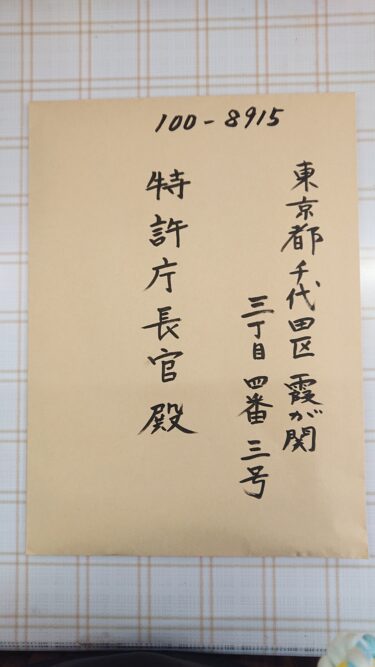 100-8915
東京都千代田区霞が関
三丁目四番三号
特許庁長官殿